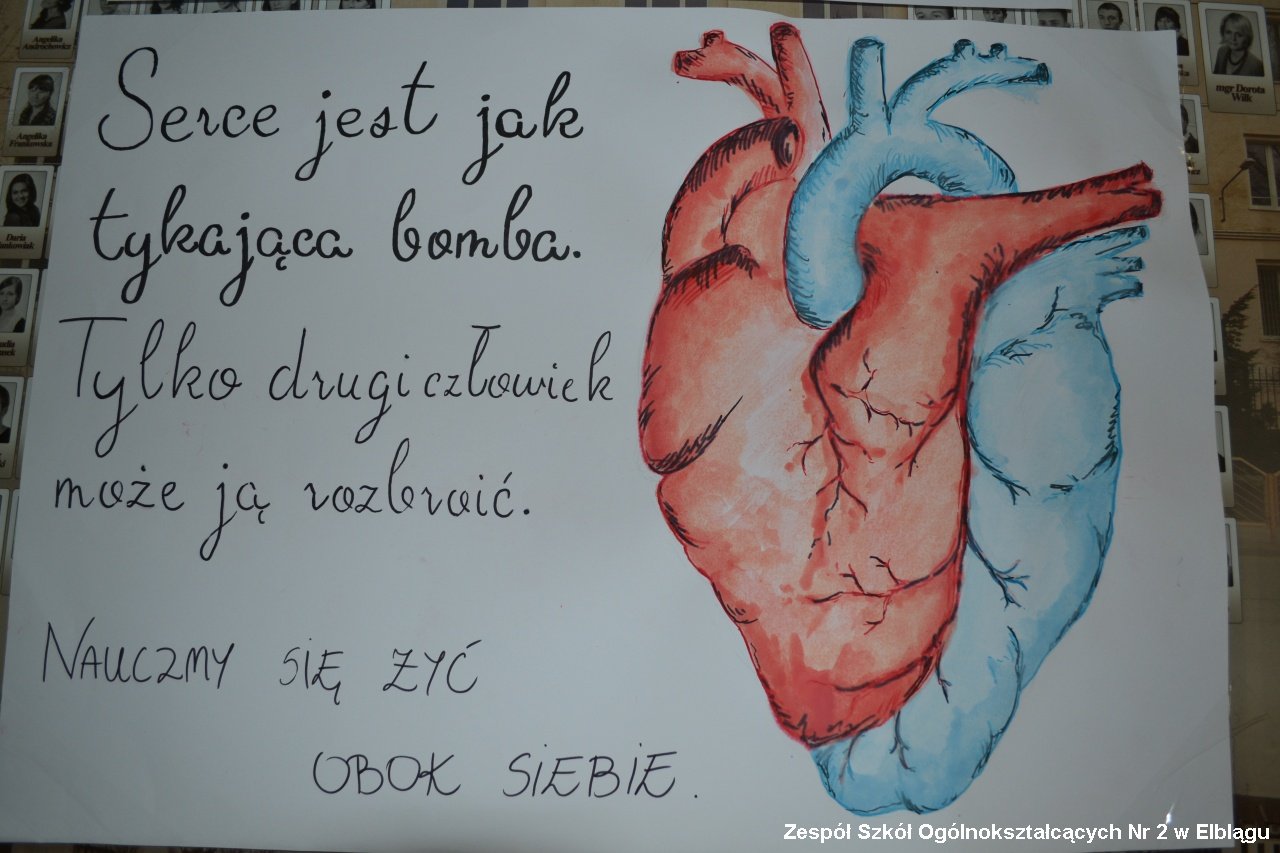 Serce jest jak
tykająca bomba.
Tylko drugi człowiek
może ją rozbroić.
NAUCZMY SIĘ ŻYĆ
OBOK SIEBIE.
Angelika
Frankowska
mgr Dorota
Wilk
Zespól Szkól Ogólnoksztalcących Nr 2 w Elblągu